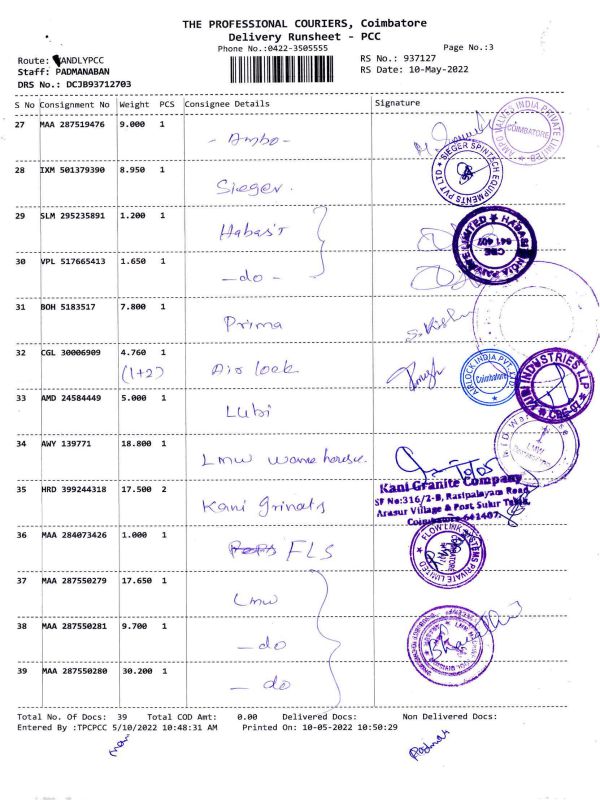 THE PROFESSIONAL COURIERS, Coimbatore
Delivery Runsheet - PCC
Phone No.:0422-3505555
Page No.:3
Route: ANDLYPCC
RS No.: 937127
Staff: PADMANABAN
RS Date: 10-May-2022
DRS No.: DCJB93712703
S No Consignment No Weight PCS Consignee Details Signature
27 MAA 287519476 9.000 1
- Ambo -
AMPO VALVES INDIA PRIVATE LIMITED
COIMBATORE
28 IXM 501379390 8.950 1
Sieger.
SIEGER SPINTECH EQUIPMENTS PVT LTD
29 SLM 295235891 1.200 1
Habasit
HABASIT INDIA PRIVATE LIMITED
CBE
641 407
30 VPL 517665413 1.650 1
- do -
31 BOH 5183517 7.800 1
Prima
32 CGL 30006909 4.760 1
(1+2)
Air lock
AIRLOCK INDIA PVT. LTD.
Coimbatore
INDUSTRIES LLP
33 AMD 24584449 5.000 1
Lubi
34 AWY 139771 18.800 1
LMW
LMW
35 HRD 399244318 17.500 2
Kani Grinats
Kani Granite Company
SF No:316/2-B, Rasipalayam Road,
Arasur Village & Post, Sulur Taluk,
Coimbatore-641407.
36 MAA 284073426 1.000 1
FLS
FLOW LINK SYSTEMS PRIVATE LIMITED
37 MAA 287550279 17.650 1
LMW
38 MAA 287550281 9.700 1
- do
39 MAA 287550280 30.200 1
- do
Total No. Of Docs: 39 Total COD Amt: 0.00 Delivered Docs: Non Delivered Docs:
Entered By :TPCPCC 5/10/2022 10:48:31 AM Printed On: 10-05-2022 10:50:29